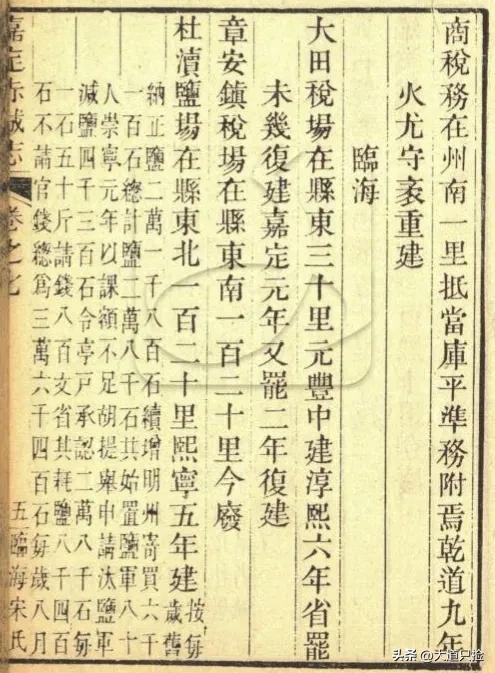 商稅務在州南一里抵當庫平準務附焉乾道九年
火尤守袤重建
臨海
大田稅場在縣東三十里元豐中建淳熙六年省罷
未幾復建嘉定元年又罷二年復建
章安鎮稅場在縣東南一百二十里今廢
杜瀆鹽場在縣東北一百二十里熙寧五年建按每
歲舊
納正鹽二萬一千八百石續增明州寄買六千
一百石總計鹽二萬八千石共始置鹽軍八十
人崇寧元年以課額不足胡提舉申請汰鹽軍
減鹽四千三百石令亭戶承認二萬八千石每
一石五十斤請錢八百文省其耗鹽八千四百
石不請官錢總爲三萬六千四百石每歲八月
嘉定赤城志
卷之七
五
臨海宋氏
头条 @大道只捡